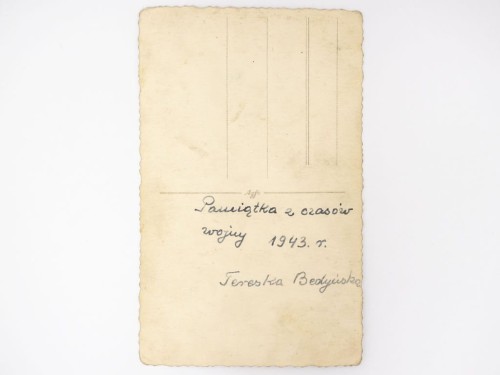 Pamiątka z czasów
wojny 1943. r.
Tereska Bedyńska